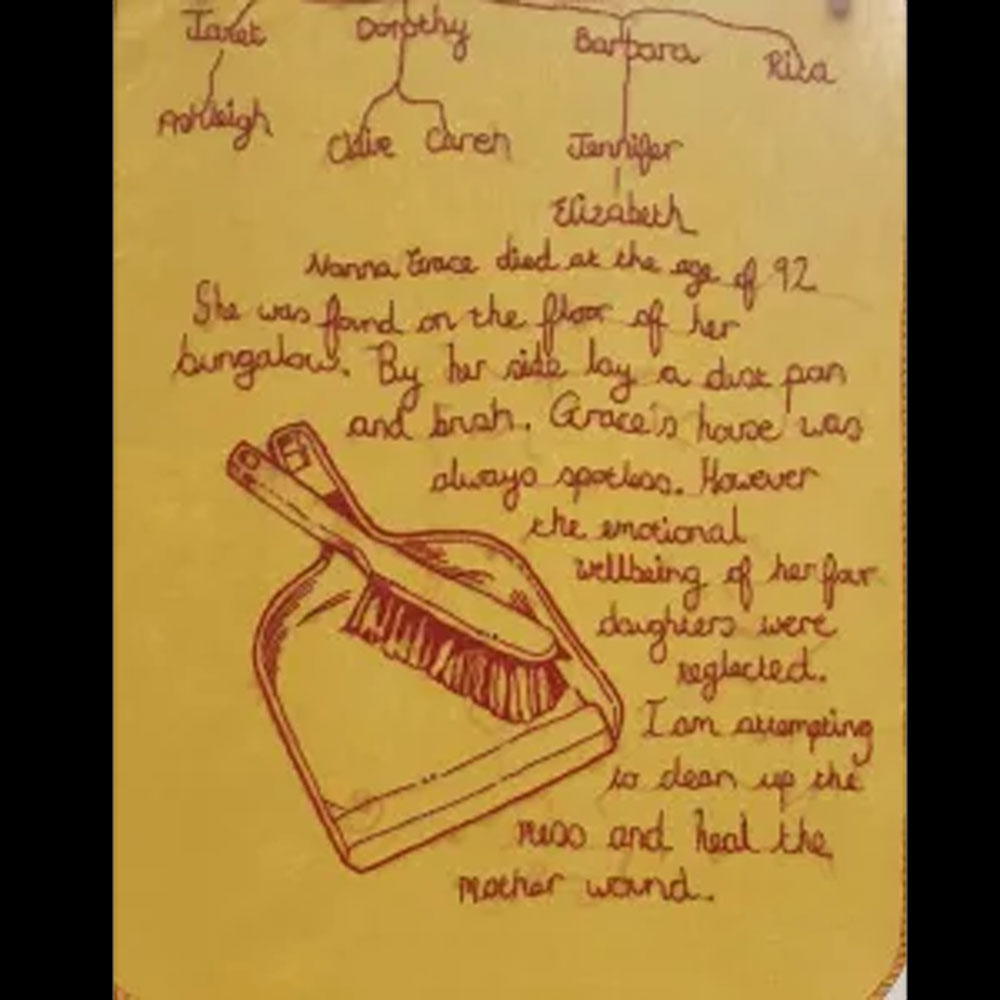 Janet Dorothy Barbara Rita
Ashleigh Clive Caren Jennifer
Elizabeth
Nanna Grace died at the age of 92
She was found on the floor of her
bungalow. By her side lay a dust pan
and brush. Grace's house was
always spotless. However
the emotional
wellbeing of her four
daughters were
neglected.
I am attempting
to clean up the
mess and heal the
mother wound.